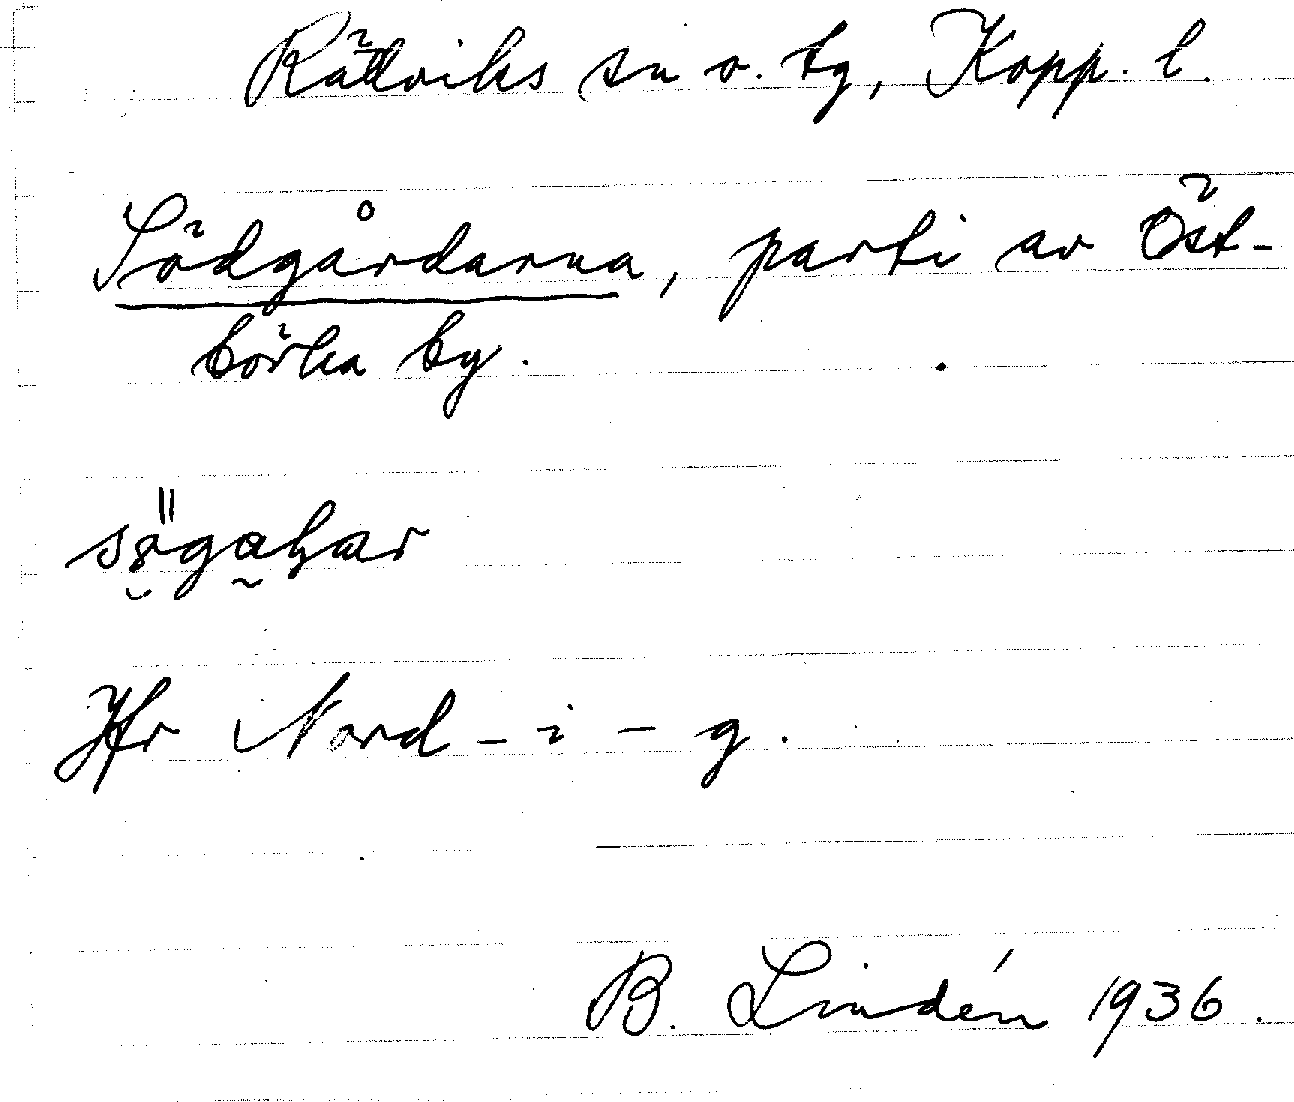 Rättviks sn o. tg, Kopp. l.
Södgårdarna, parti av Öst-
börka by.
Jfr Nord-i-g.
B. Lindén 1936.